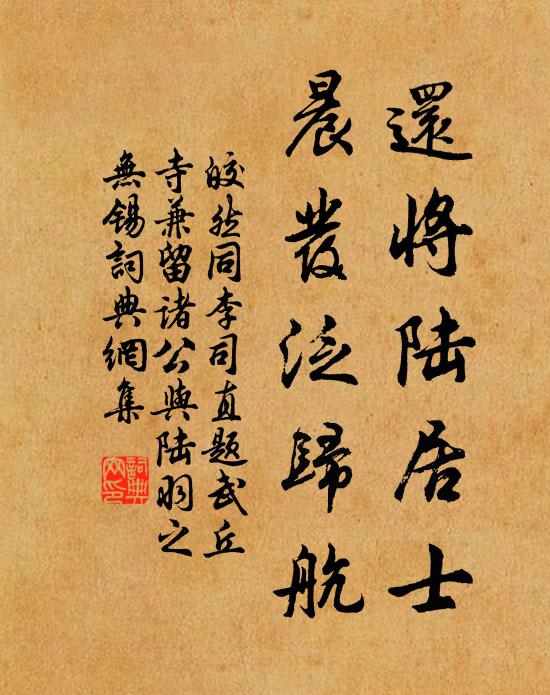 還將陸居士
晨發泛歸航
皎然同李司直題武丘
寺兼留諸公與陸羽之
無錫詞典網集
詞典網印